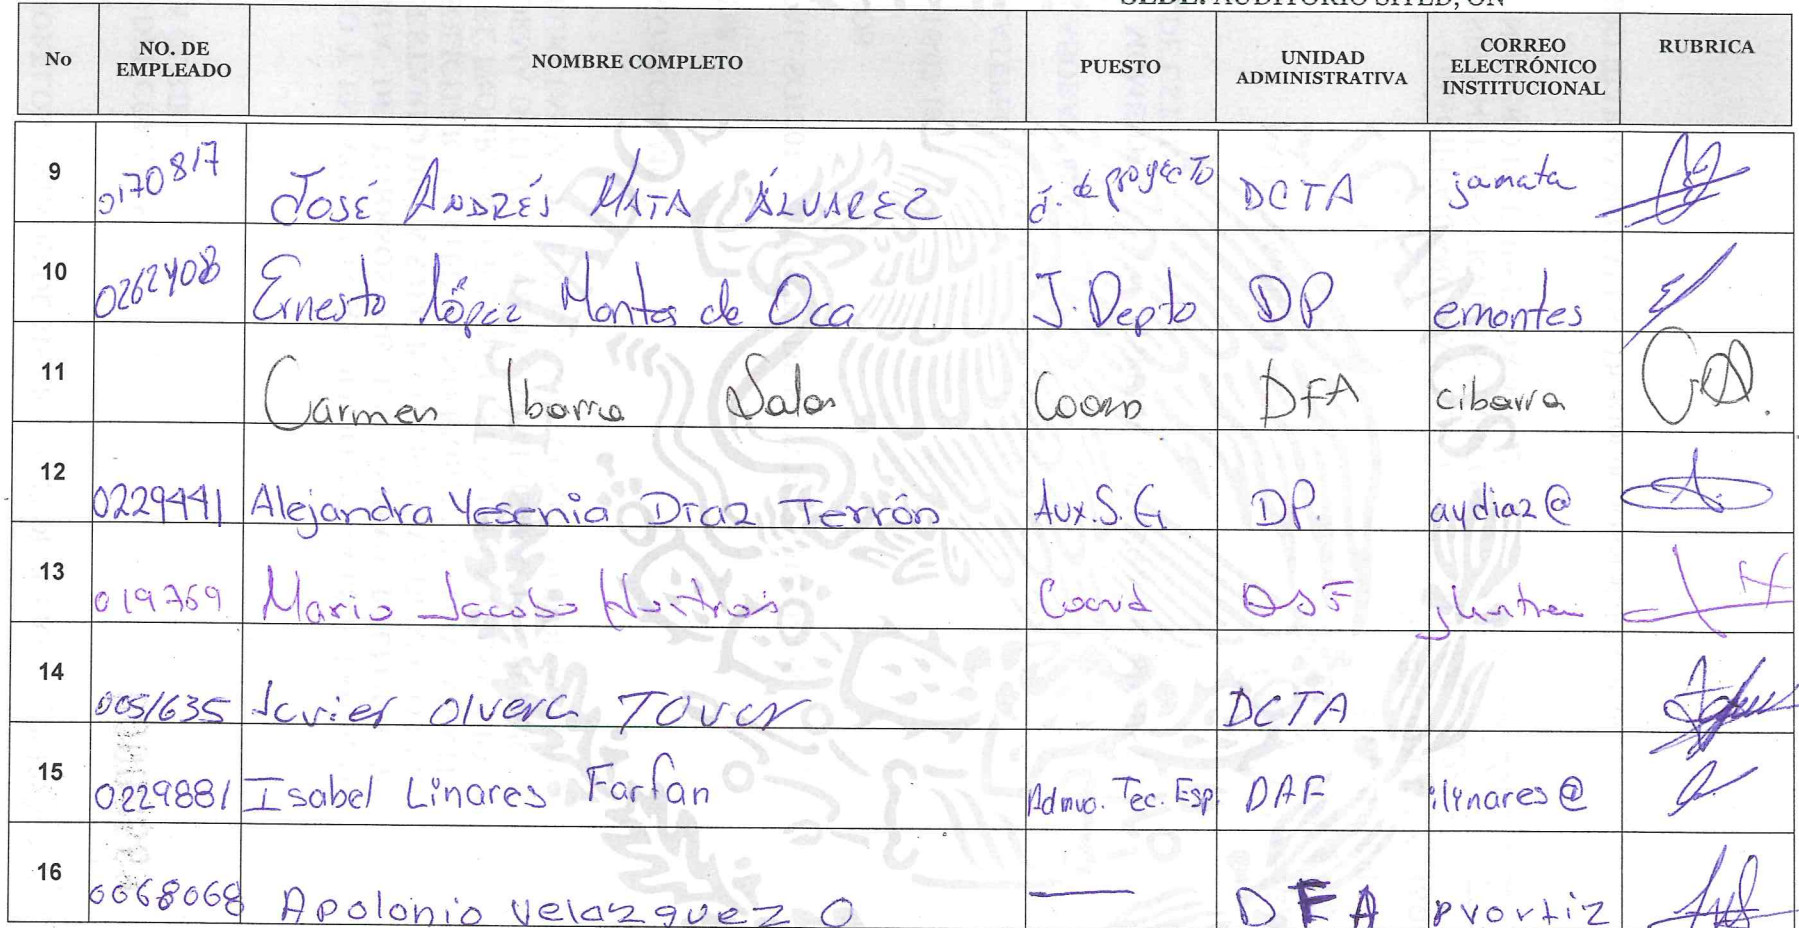 SEDE: AUDITORIO SITED, ON
No NO. DE EMPLEADO NOMBRE COMPLETO PUESTO UNIDAD ADMINISTRATIVA CORREO ELECTRÓNICO INSTITUCIONAL RUBRICA
9 0170817 JOSÉ ANDRÉS MATA ÁLVAREZ J. de proyecto DCTA jamata
10 0262408 Ernesto López Montes de Oca J. Depto DP emontes
11 Carmen Ibarra Salas Coord DFA cibarra
12 0229441 Alejandra Yesenia Díaz Terrón Aux. S. G DP. aydiaz@
13 019769 Mario Jacobo Coord
14 0051635 Javier Olvera Tovar DCTA
15 0229881 Isabel Linares Farfan Admvo. Tec. Esp. DAF ilinares@
16 0068068 Apolonio Velazquez O — DFA pvortiz